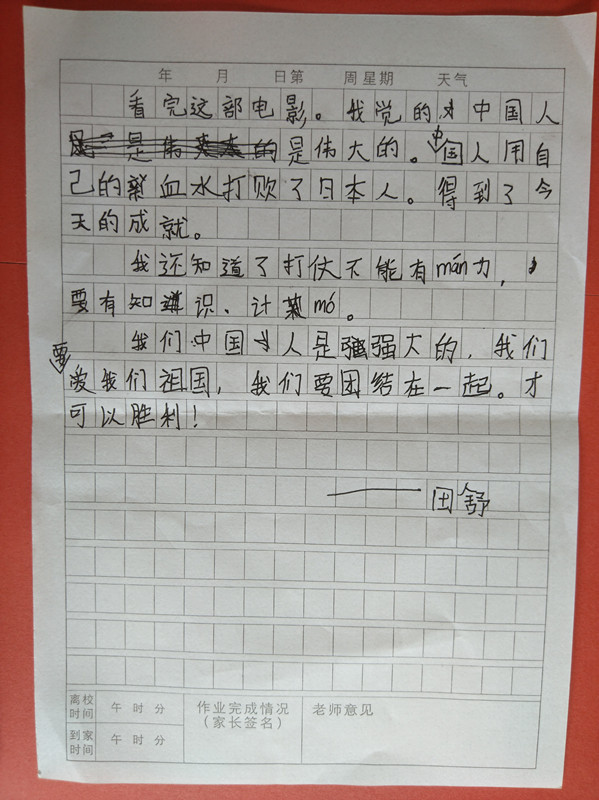 年 月 日第 周 星期 天气
看完这部电影。我觉的中国人
是伟大的。中国人用自
己的血水打败了日本人。得到了今
天的成就。
我还知道了打仗不能有mán力,
要有知识、计mó。
我们中国人是强大的,我们
要爱我们祖国,我们要团结在一起。才
可以胜利!
——田舒
离校时间 午 时 分 作业完成情况(家长签名) 老师意见
到家时间 午 时 分